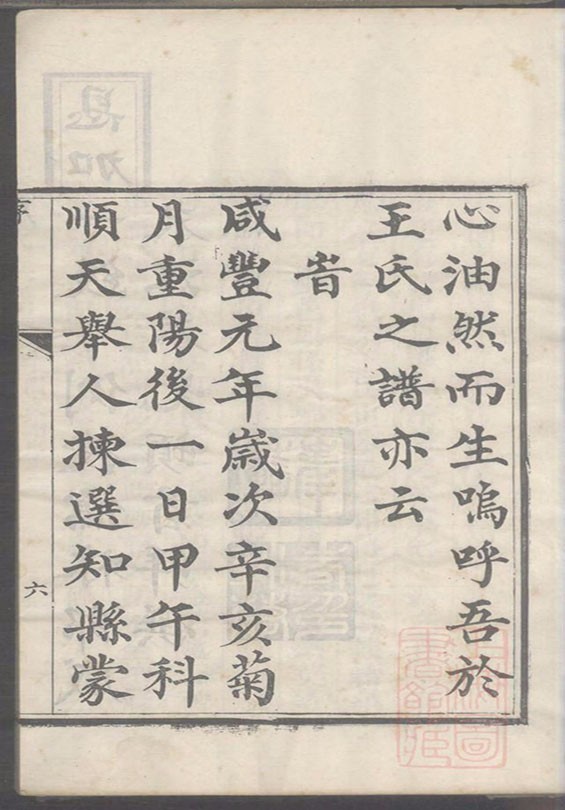 心油然而生嗚呼吾於
王氏之譜亦云
旹
咸豐元年嵗次辛亥菊
月重陽後一日甲午科
順天舉人揀選知縣蒙
六